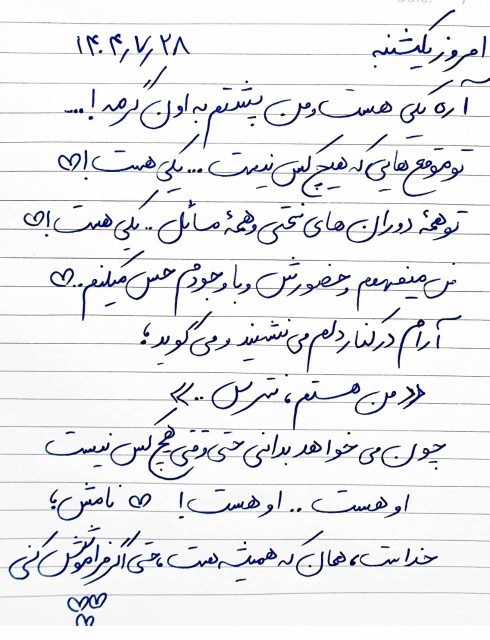 امروز یکشنبه ۱۴۰۴/۷/۲۸
آره یکی هست ومن پشتم به اون گرمه!....
تو موقع هایی که هیچ کس نیست... یکی هست!♡
تو همهٔ دوران های سختی وهمهٔ مسائل.. یکی هست!♡
من میفهمم وحضورش وبا وجودم حس میکنم..♡
آرام در کنار دلم می نشیند و می گوید؛
«من هستم، نترس..»
چون می خواهد بدانی حتی وقتی هیچ کس نیست
او هست.. او هست! ♡ نامش؛
خداست، همان که همیشه هست، حتی اگر فراموشش کنی
♡♡
♡